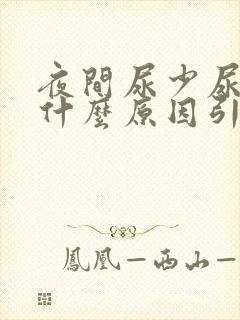 夜間尿少尿
什麼原因引
鳳凰—西山—